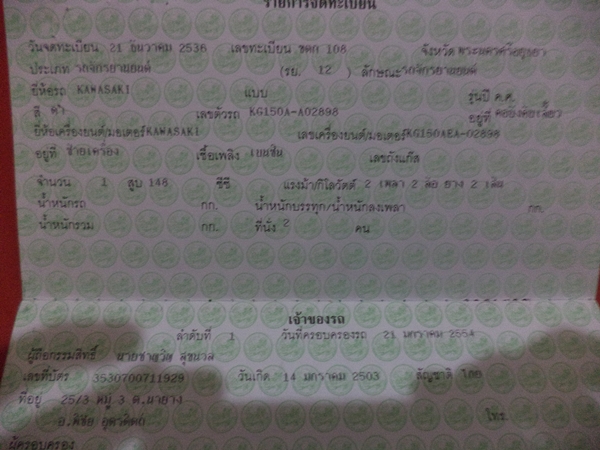 รายการจดทะเบียน
วันจดทะเบียน 21 ธันวาคม 2536 เลขทะเบียน 108 จังหวัด พระนครศรีอยุธยา
ประเภท รถจักรยานยนต์ (รย. 12 ) ลักษณะ รถจักรยานยนต์
ยี่ห้อรถ KAWASAKI แบบ รุ่นปี ค.ศ.
สี ดำ เลขตัวรถ KG150A-A02898 อยู่ที่ คอข้างเลี้ยว
ยี่ห้อเครื่องยนต์/มอเตอร์ KAWASAKI เลขเครื่องยนต์/มอเตอร์ KG150AEA-02898
อยู่ที่ ซ้ายเครื่อง เชื้อเพลิง เบนซิน เลขถังแก๊ส
จำนวน 1 สูบ 148 ซีซี แรงม้า/กิโลวัตต์ 2 เพลา 2 ล้อ ยาง 2 เส้น
น้ำหนักรถ กก. น้ำหนักบรรทุก/น้ำหนักลงเพลา กก.
น้ำหนักรวม กก. ที่นั่ง 2 คน
เจ้าของรถ
ลำดับที่ 1 วันที่ครอบครองรถ 21 มกราคม 2554
ผู้ถือกรรมสิทธิ์
เลขที่บัตร 3530700711929 วันเกิด 14 มกราคม 2503 สัญชาติ ไทย
ที่อยู่ 25/3 หมู่ 3 ต.นายาง
อ.พิชัย อุตรดิตถ์ โทร.
ผู้ครอบครอง